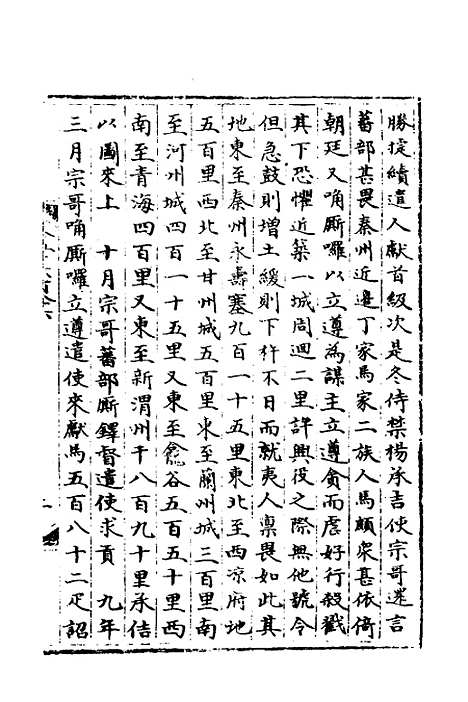 勝捷續遣人獻首級次是冬侍禁楊承吉使宗哥還言
蕃部甚畏秦州近邊丁家馬家二族人馬頗衆甚依倚
朝廷又唃厮囉以立遵為謀主立遵貪而虐好行殺戮
其下恐懼近築一城周迴二里許興役之際無他號令
但急鼓則增土緩則下杵不日而就夷人禀畏如此其
地東至秦州永壽塞九百一十五里東北至西凉府地
五百里西北至甘州城五百里東至蘭州城三百里南
至河州城四百一十五里又東至龕谷五百五十里西
南至青海四百里又東至新渭州千八百九十里承吉
以圖來上 十月宗哥蕃部厮鐸督遣使求貢 九年
三月宗哥唃厮囉立遵遣使來獻馬五百八十二疋詔